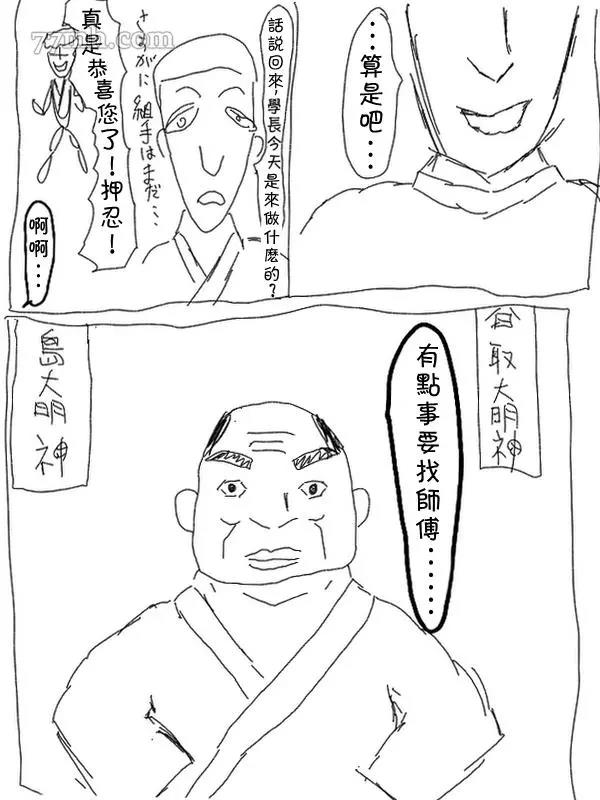 …算是吧…
話說回來，學長今天是來做什麼的？
さすがに組手はまだ…
真是恭喜您了！押忍！
呵呵…
有點事要找師傅……
取大明神
島大明神
77mh.com